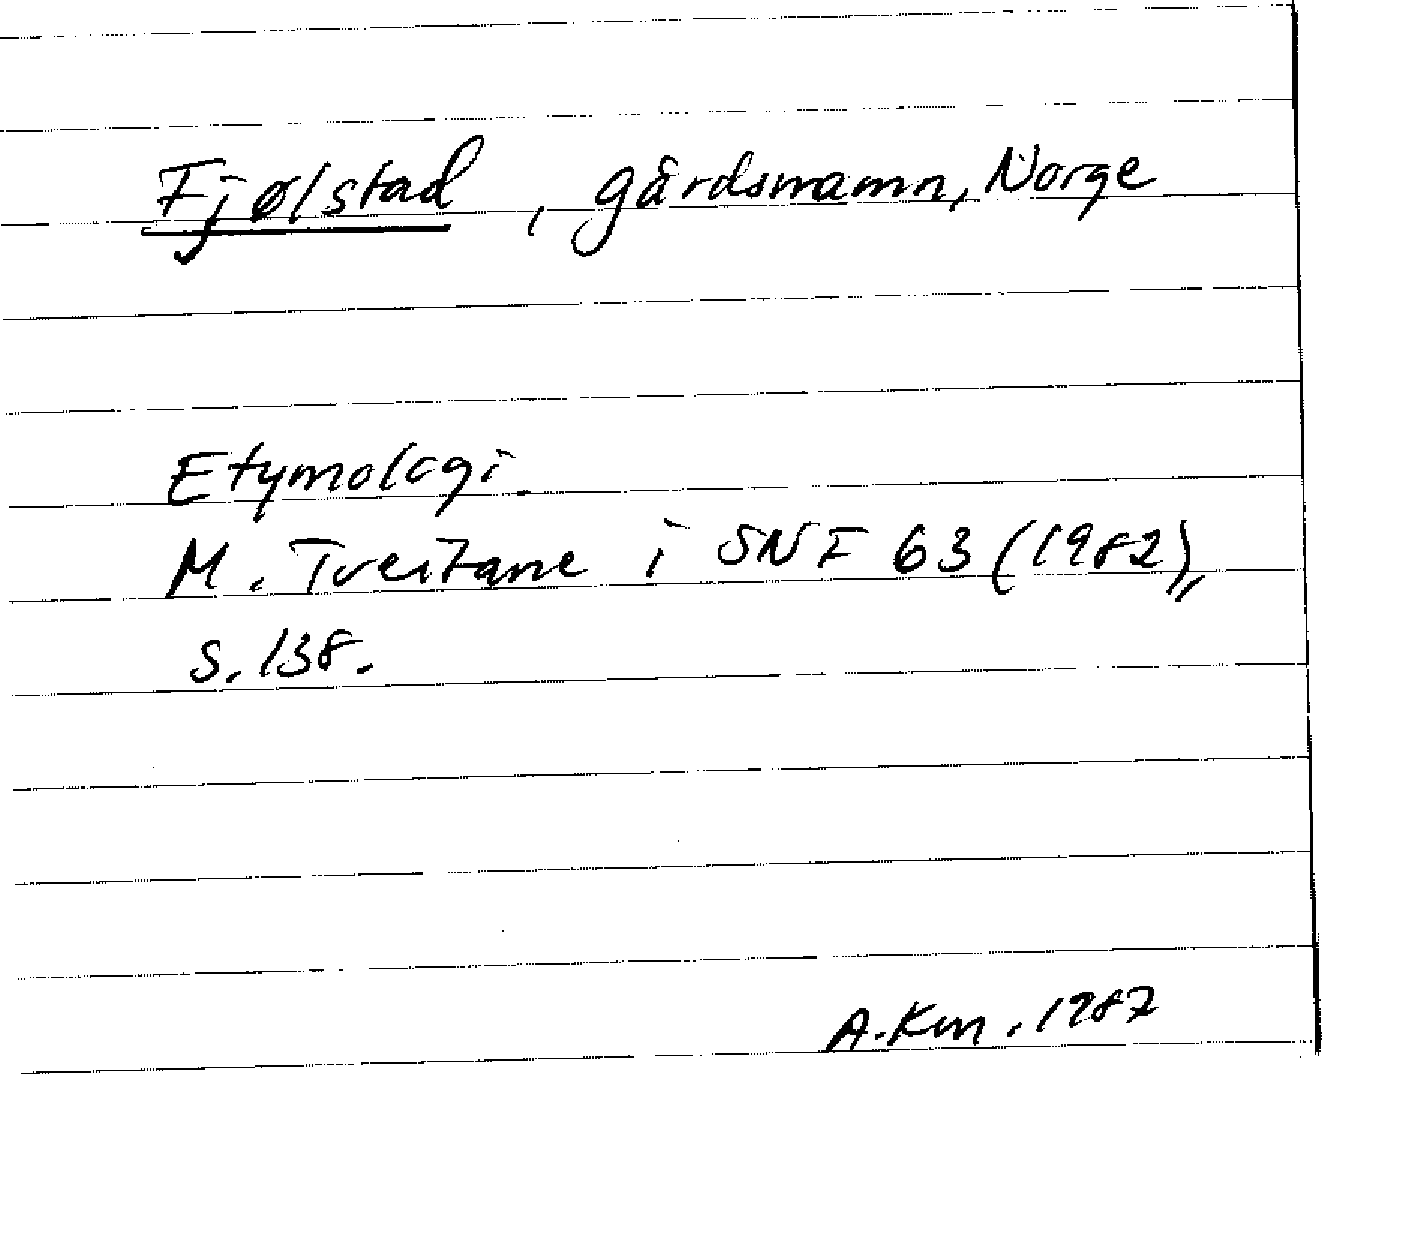 Fjølstad, gårdsnamn, Norge
Etymologi.
M. Tveitane i SNF 63 (1982),
s. 138.
A. Km. 1987